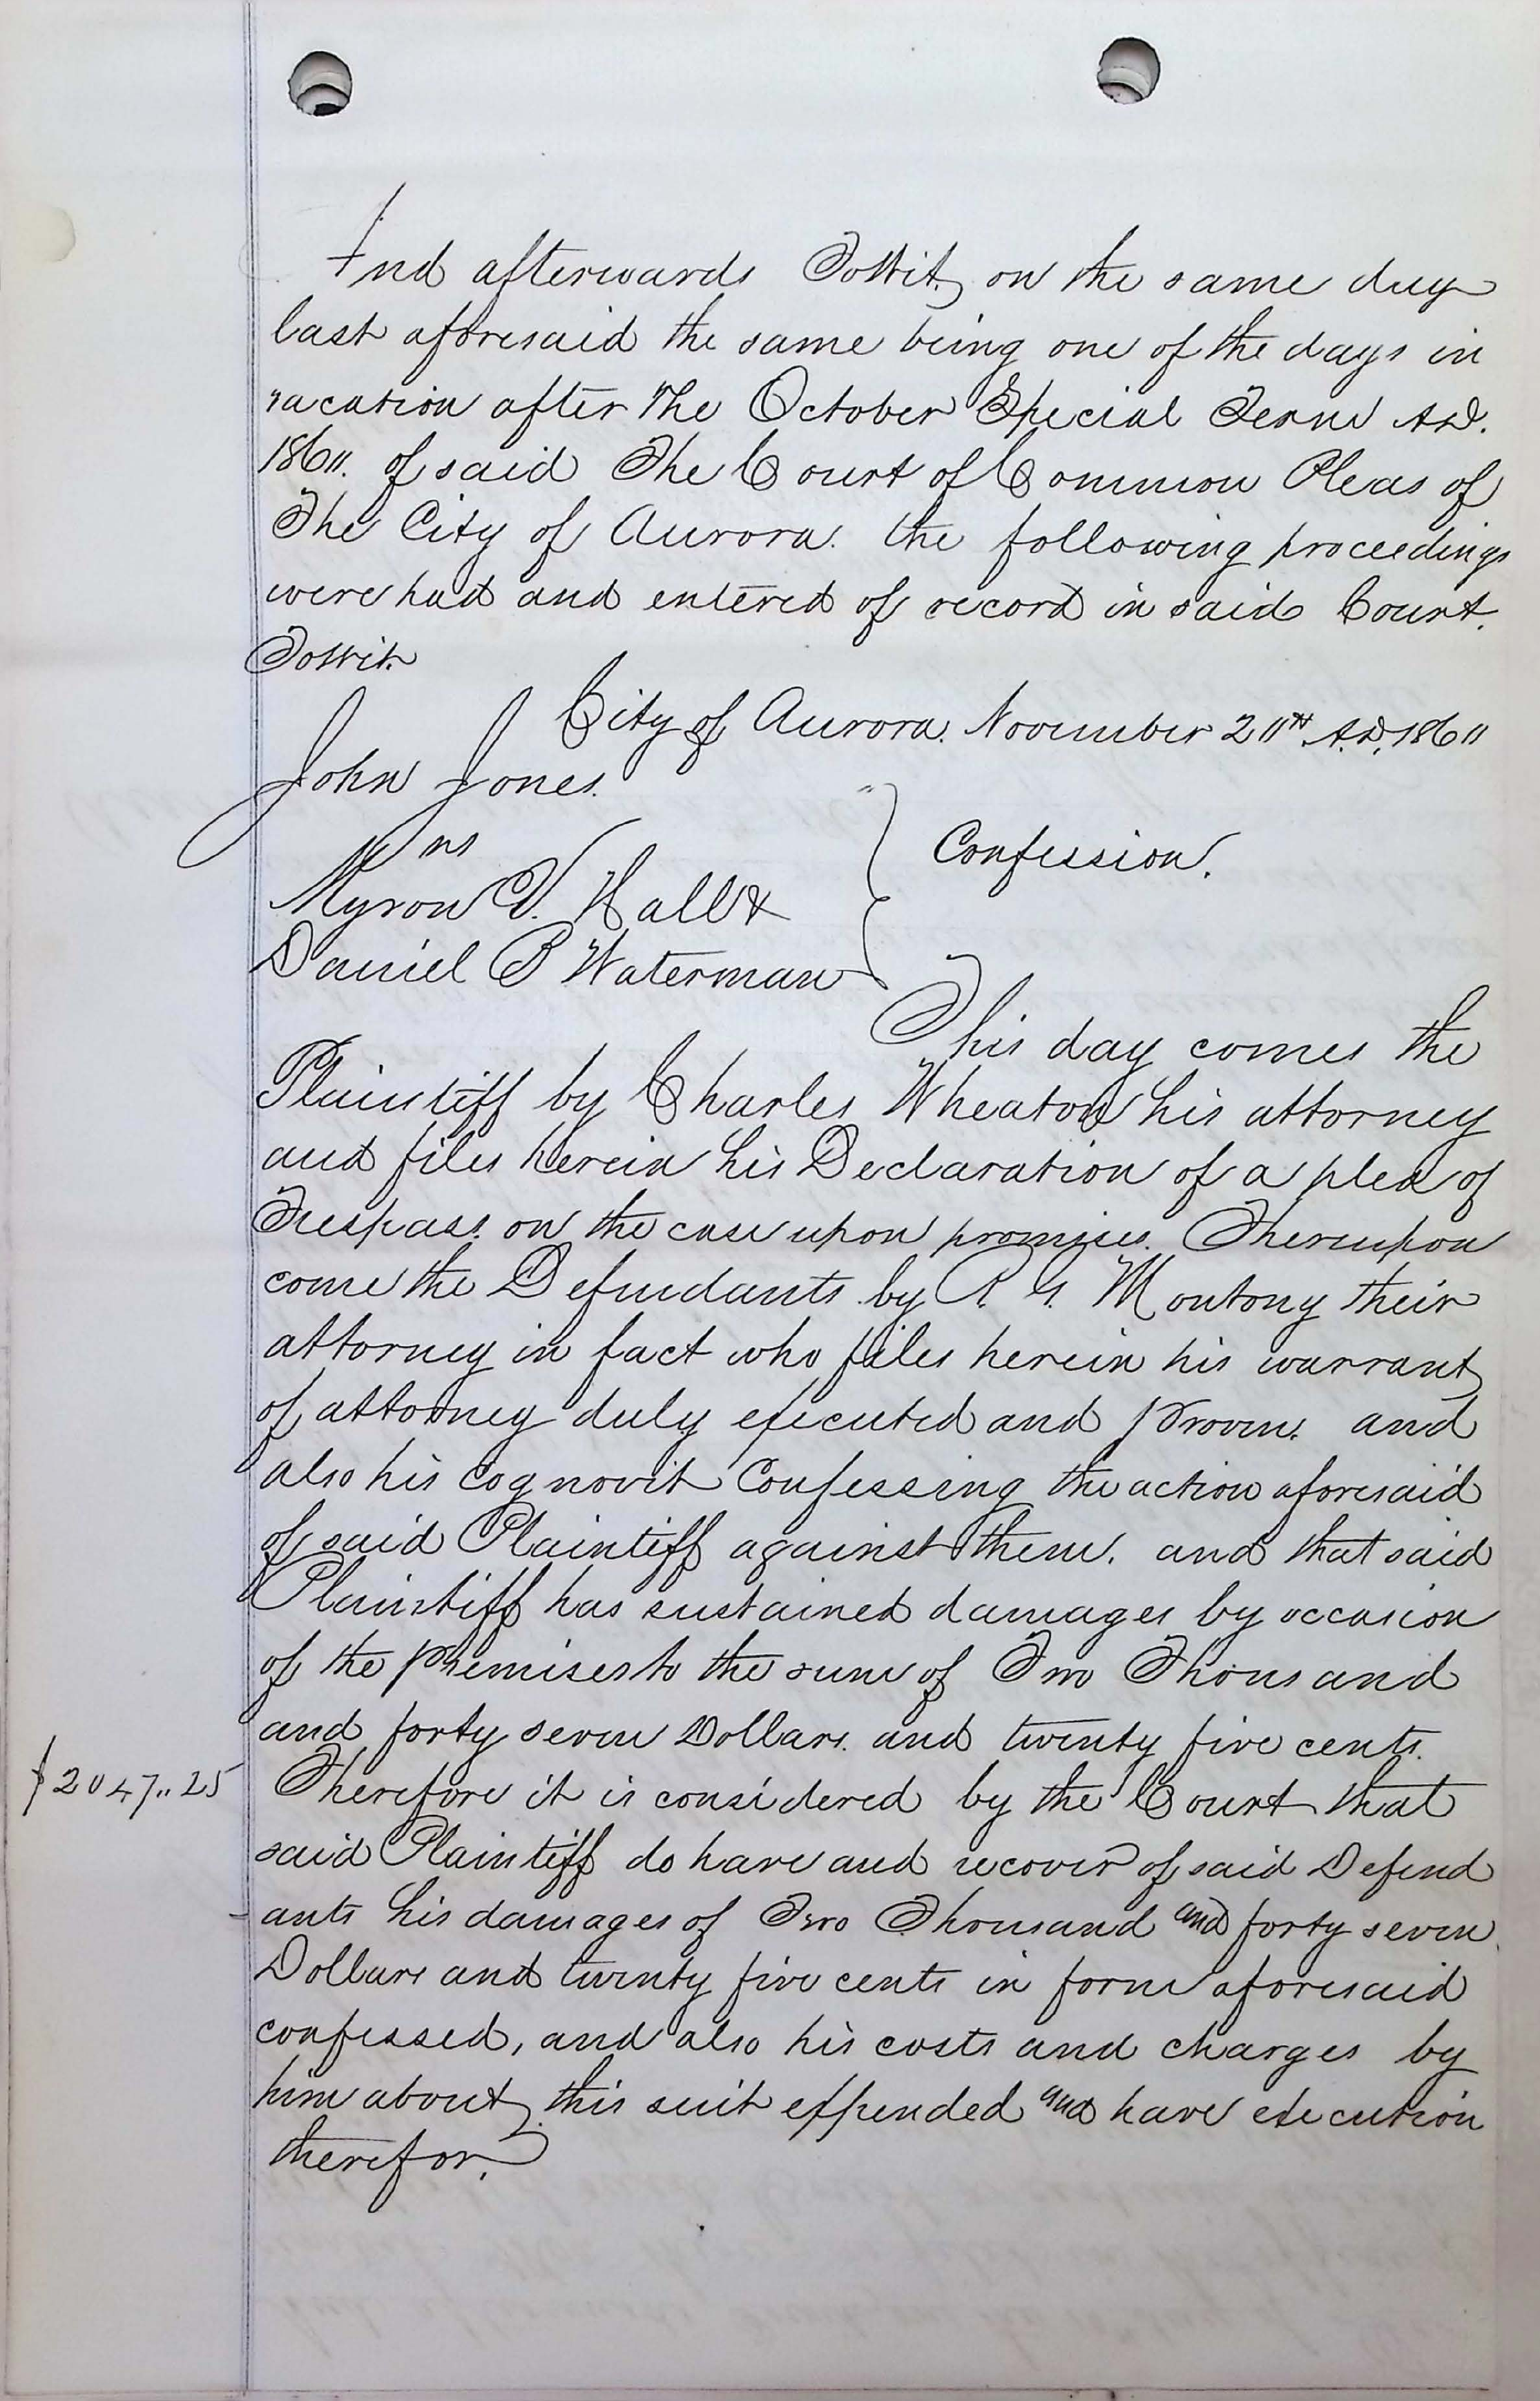 And afterwards Towit, on the same day
last aforesaid the same being one of the days in
vacation after the October Special Term A.D.
1861. of said The Court of Common Pleas of
The City of Aurora. the following proceedings
were had and entered of record in said Court.
Towit.
City of Aurora. November 211th A.D. 18611
John Jones.
vs
Myron V. Hall &
Daniel B Waterman
Confession.
This day comes the
Plaintiff by Charles Wheaton his attorney
and files herein his Declaration of a plea of
Trespass. on the case upon promises. Thereupon
come the Defendants by R. G. Montony their
attorney in fact who files herein his warrant
of attorney duly executed and proven. and
also his cognovit Confessing the action aforesaid
of said Plaintiff against them. and that said
Plaintiff has sustained damages by occasion
of the premises to the sum of Two Thousand
and forty seven Dollars. and twenty five cents.
$2047..25 Therefore it is considered by the Court that
said Plaintiff do have and recover of said Defend
-ants his damages of Two Thousand and forty seven
Dollars and twenty five cents in form aforesaid
confessed, and also his costs and charges by
him about this suit expended and have execution
therefor.